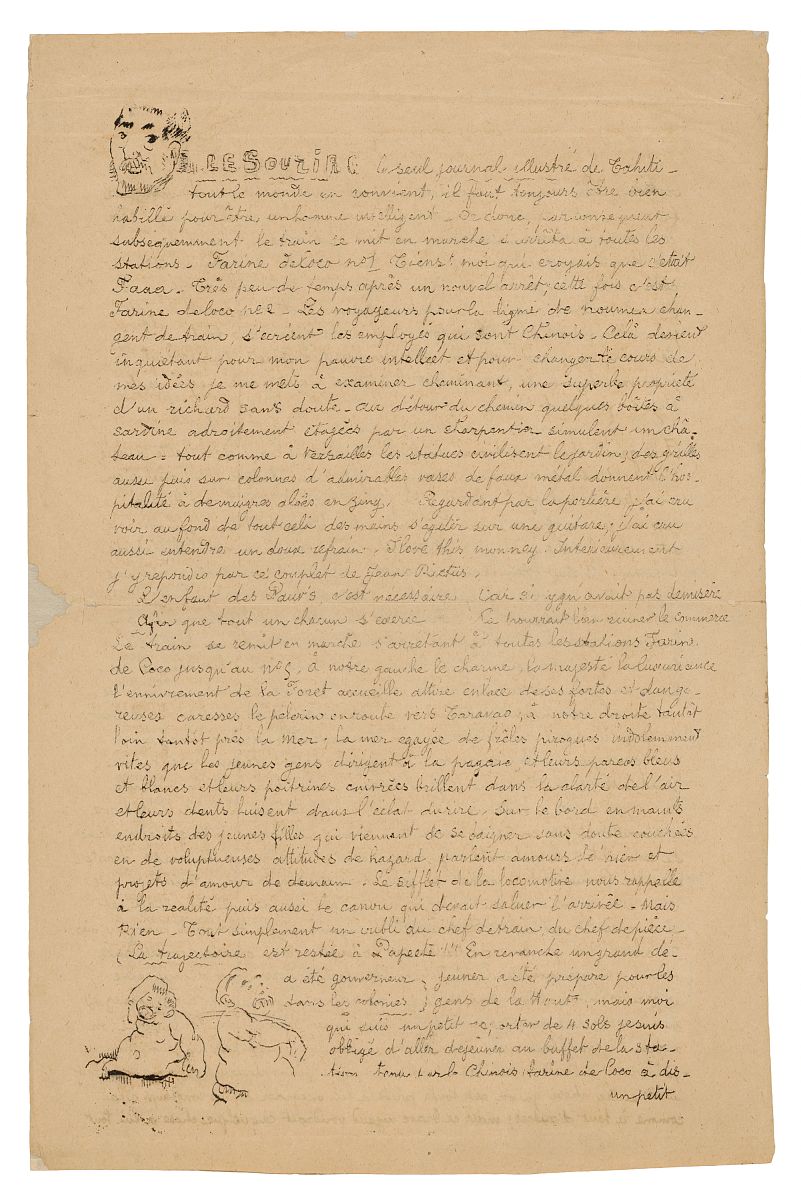 LE SOURIRE le seul journal illustré de Tahiti -
tout le monde en convient, il faut toujours être bien
habillé pour être un homme intelligent - Or donc, par conséquent
subséquemment le train se mit en marche s'arrêta à toutes les
stations - Farine de Coco no 1 Tiens! moi qui croyais que c'était
Faaa - Très peu de temps après un nouvel arrêt, cette fois c'est
Farine de Coco no 2 - Les voyageurs pour la ligne de Noumea chan-
gent de train, s'écrient les employés qui sont Chinois - Celà devient
inquiétant pour mon pauvre intellect et pour changer le cours de
mes idées je me mets à examiner cheminant, une superbe propriété
d'un richard sans doute - au détour du chemin quelques boîtes à
sardine adroitement étagées par un charpentier simulent un châ-
teau = tout comme à Versailles les statues civilisent le jardin; des grilles
aussi puis sur colonnes d'admirables vases de faux métal donnent l'hos-
pitalité à de maigres aloës en zing. Regardant par la portière, j'ai cru
voir au fond de tout celà des mains s'agiter sur une guitare; j'ai cru
aussi entendre un doux refrain. I love this monney. Intérieurement
j'y repondis par ce couplet de Jean Rictus.
L'enfant des Pauv's c'est nécessaire Car si y gn avait pas d'misère
Afin que tout un chacun s'exerce Ca pourrait bien ruiner le commerce
Le train se remit en marche s'arrêtant à toutes les stations Farin.
de Coco jusqu'au no 5. à notre gauche le charme, la majesté la luxuriance
l'ennivrement de la Foret accueille attire enlace de ses fortes et dange-
reuses caresses le pèlerin en route vers Taravao; à notre droite tantôt
loin tantôt près la mer; la mer egayée de frêles pirogues indolemment
vites que les jeunes gens dirigent à la pagaie et leurs pareos bleus
et blancs et leurs poitrines cuivrées brillent dans la clarté de l'air
et leurs dents luisent dans l'éclat du rire. Sur le bord en maints
endroits des jeunes filles qui viennent de se baigner sans doute couchées
en de voluptueuses attitudes de hazard, parlent amours d'hier et
projets d'amour de demain. Le sifflet de la locomotive nous rappelle
à la realité puis aussi le canon qui devait saluer l'arrivée - Mais
Rien - Tout simplement un oubli du chef de train, du chef de pièce -
(La trajectoire est restée à Papeete!!! En revanche un grand dé-
a été gouverneur jeuner a été préparé pour les
dans les colonies gens de la Haut, mais moi
qui suis un petit reporter de 4 sols je suis
obligé d'aller déjeuner au buffet de la sta-
tion tenu par le Chinois farine de Coco à dis-
un petit